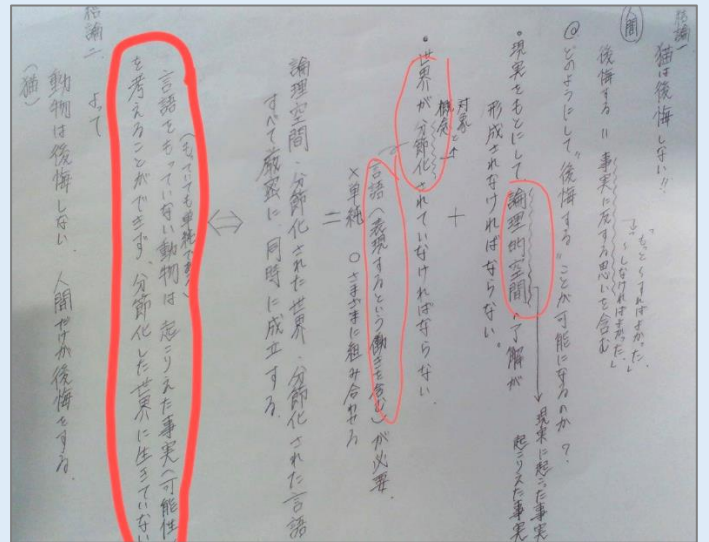 結論一
猫は後悔しない!!
人間
後悔する=事実に反する思いを含む
"もっと〜すればよかった。"
"〜しなければよかった。"
@どのようにして"後悔する"ことが可能になるのか?
・現実をもとにして、論理的空間の了解が
形成されなければならない。
現実に起こった事実
起こりえた事実
+
・世界が分節化されていなければならない
対象
言語(表現するという働きを含む)が必要
×単純 ○さまざまに組み合わせる
=
論理空間・分節化された世界・分節化された言語
すべて厳密に、同時に成立する。
⇔
(もっていても単純である)
言語をもっていない動物は、起こりえた事実(可能性
を考えることができず、分節化した世界に生きていない
よって
結論二、
動物は後悔しない 人間だけが後悔をする。
(猫)